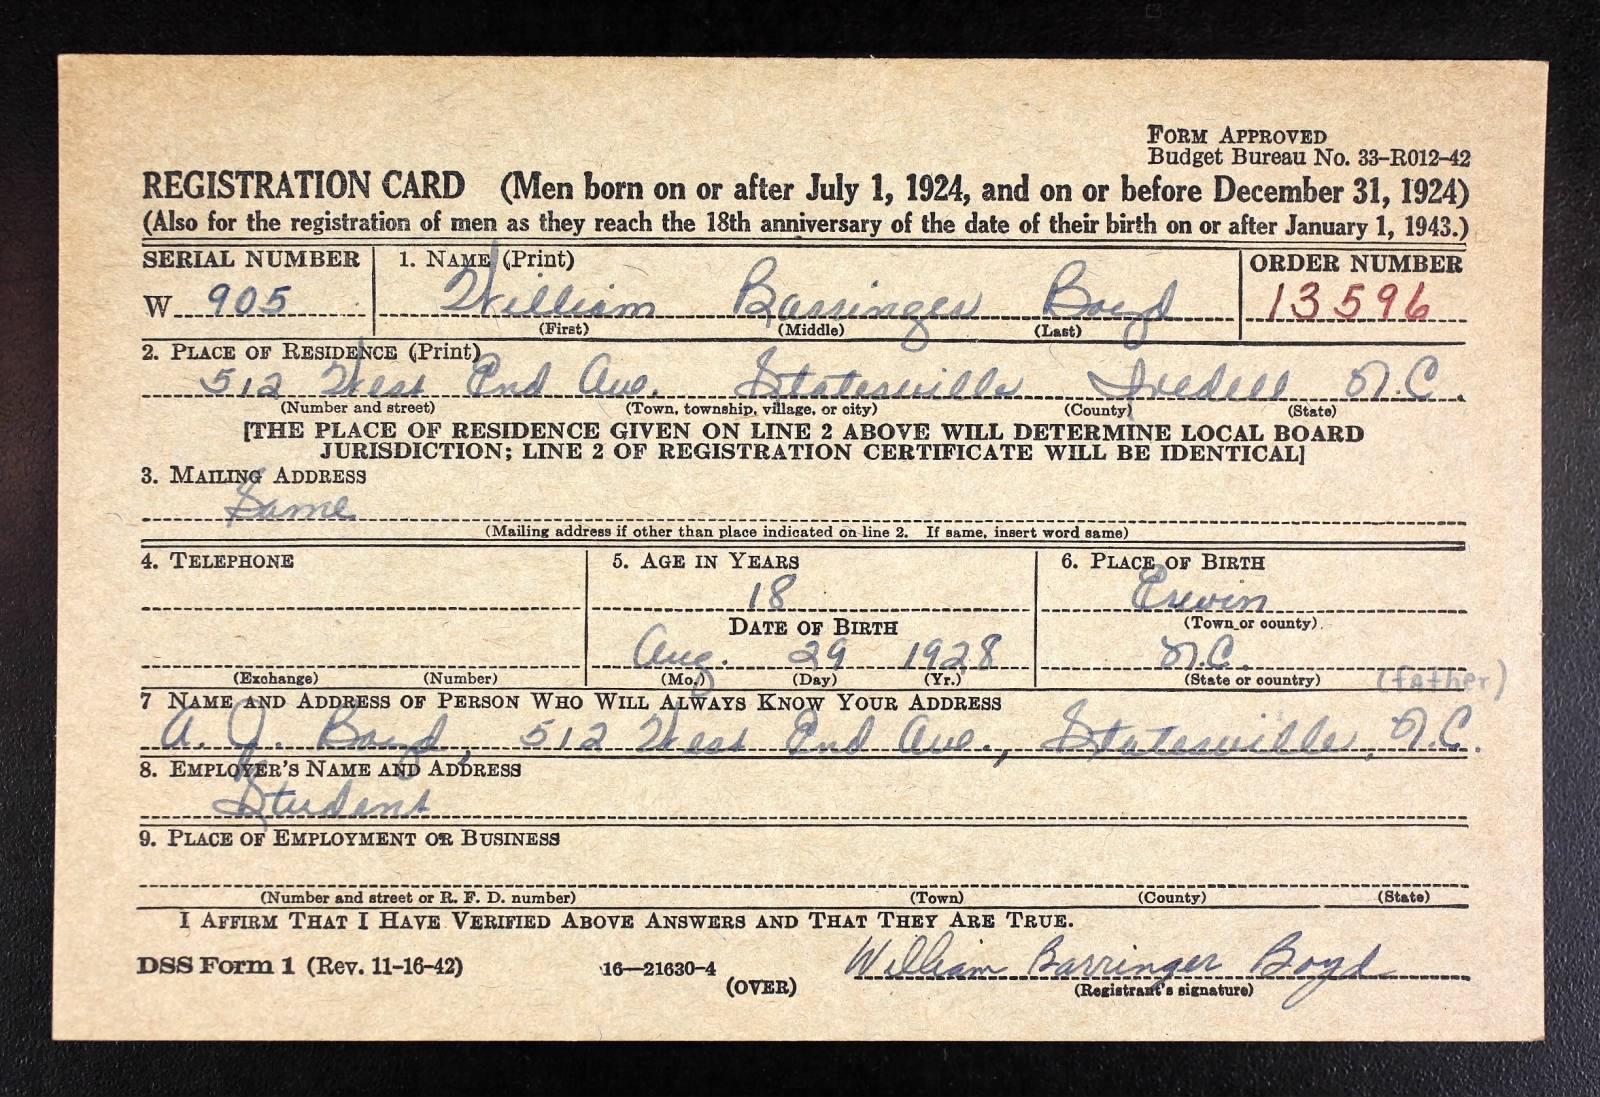 FORM APPROVED
Budget Bureau No. 33–R012–42
REGISTRATION CARD (Men born on or after July 1, 1924, and on or before December 31, 1924)
(Also for the registration of men as they reach the 18th anniversary of the date of their birth on or after January 1, 1943.)
SERIAL NUMBER 1. NAME (Print) ORDER NUMBER
W 905 William Barringer Boyd 13596
(First) (Middle) (Last)
2. PLACE OF RESIDENCE (Print)
512 West End Ave. Statesville Iredell N.C.
(Number and street) (Town, township, village, or city) (County) (State)
[THE PLACE OF RESIDENCE GIVEN ON LINE 2 ABOVE WILL DETERMINE LOCAL BOARD
JURISDICTION; LINE 2 OF REGISTRATION CERTIFICATE WILL BE IDENTICAL]
3. MAILING ADDRESS
Same
(Mailing address if other than place indicated on line 2. If same, insert word same)
4. TELEPHONE 5. AGE IN YEARS 6. PLACE OF BIRTH
18 Erwin
DATE OF BIRTH (Town or county)
Aug. 29 1928 N.C.
(Exchange) (Number) (Mo.) (Day) (Yr.) (State or country) (father)
7 NAME AND ADDRESS OF PERSON WHO WILL ALWAYS KNOW YOUR ADDRESS
A. Q. Boyd, 512 West End Ave., Statesville, N.C.
8. EMPLOYER'S NAME AND ADDRESS
Student
9. PLACE OF EMPLOYMENT OR BUSINESS
(Number and street or R. F. D. number) (Town) (County) (State)
I AFFIRM THAT I HAVE VERIFIED ABOVE ANSWERS AND THAT THEY ARE TRUE.
DSS Form 1 (Rev. 11-16-42) 16—21630-4 (OVER) William Barringer Boyd
(Registrant's signature)